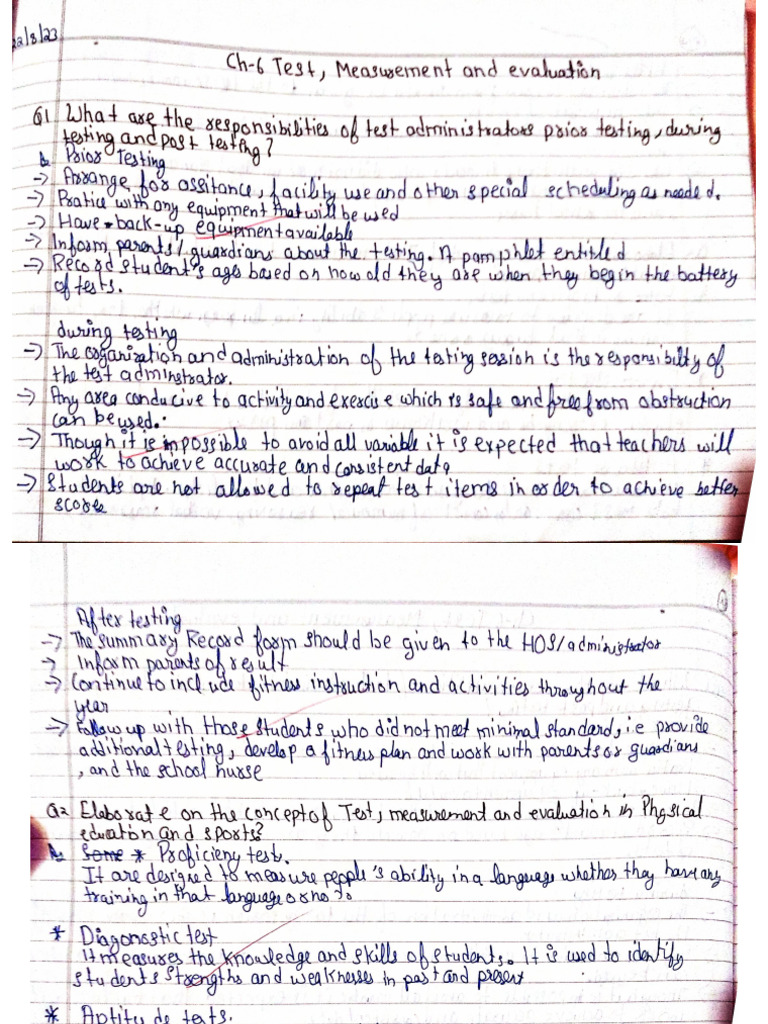 22/8/23
Ch-6 Test, Measurement and evaluation
Q1 What are the responsibilities of test administrators prior testing, during
testing and post testing?
Prior Testing
→ Arrange for assitance, facility use and other special scheduling as needed.
→ Pratice with any equipment that will be used
→ Have back-up equipment available
→ Inform parents/guardians about the testing. A pamphlet entitled
→ Record student's ages based on how old they are when they begin the battery
of tests.
during testing
→ The organization and administration of the testing session is the responsibilty of
the test adminstrator.
→ Any area conducive to activity and exercise which is safe and free from obstruction
can be used.
→ Though it is impossible to avoid all variable it is expected that teachers will
work to achieve accurate and consistent data
→ Students are not allowed to repeat test items in order to achieve better
score
After testing
→ The summary Record form should be given to the HOS/administrator
→ Inform parents of result
→ Continue to include fitness instruction and activities throughout the
year
→ Follow up with those students who did not meet minimal standard, i.e provide
additional testing, develop a fitness plan and work with parents or guardians
, and the school nurse
Q2 Elaborate on the concept of Test, measurement and evaluation in Physical
education and sports?
Some * Proficieny test.
It are designed to measure people's ability in a language whether they have any
training in that language or no
* Diagonostic test
It measures the knowledge and skills of students. It is used to identify
students strengths and weaknesses in past and present
* Aptitude tests.